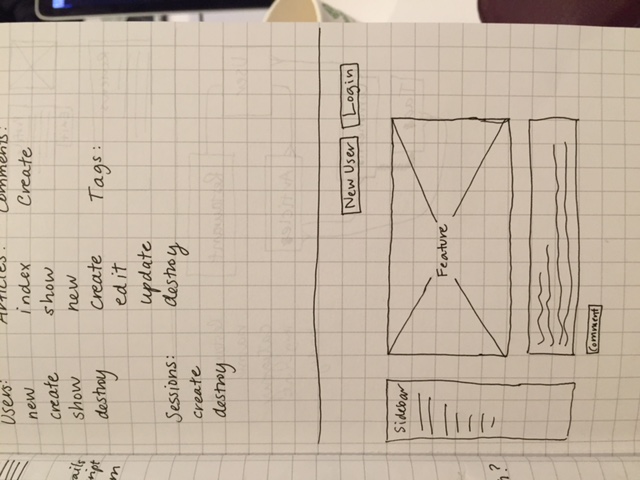 Users:
new
create
show
destroy
Sessions:
create
destroy
Articles:
index
show
new
Create
edit
update
destroy
Comments:
Create
Tags:
New User
Login
Sidebar
Feature
Comment